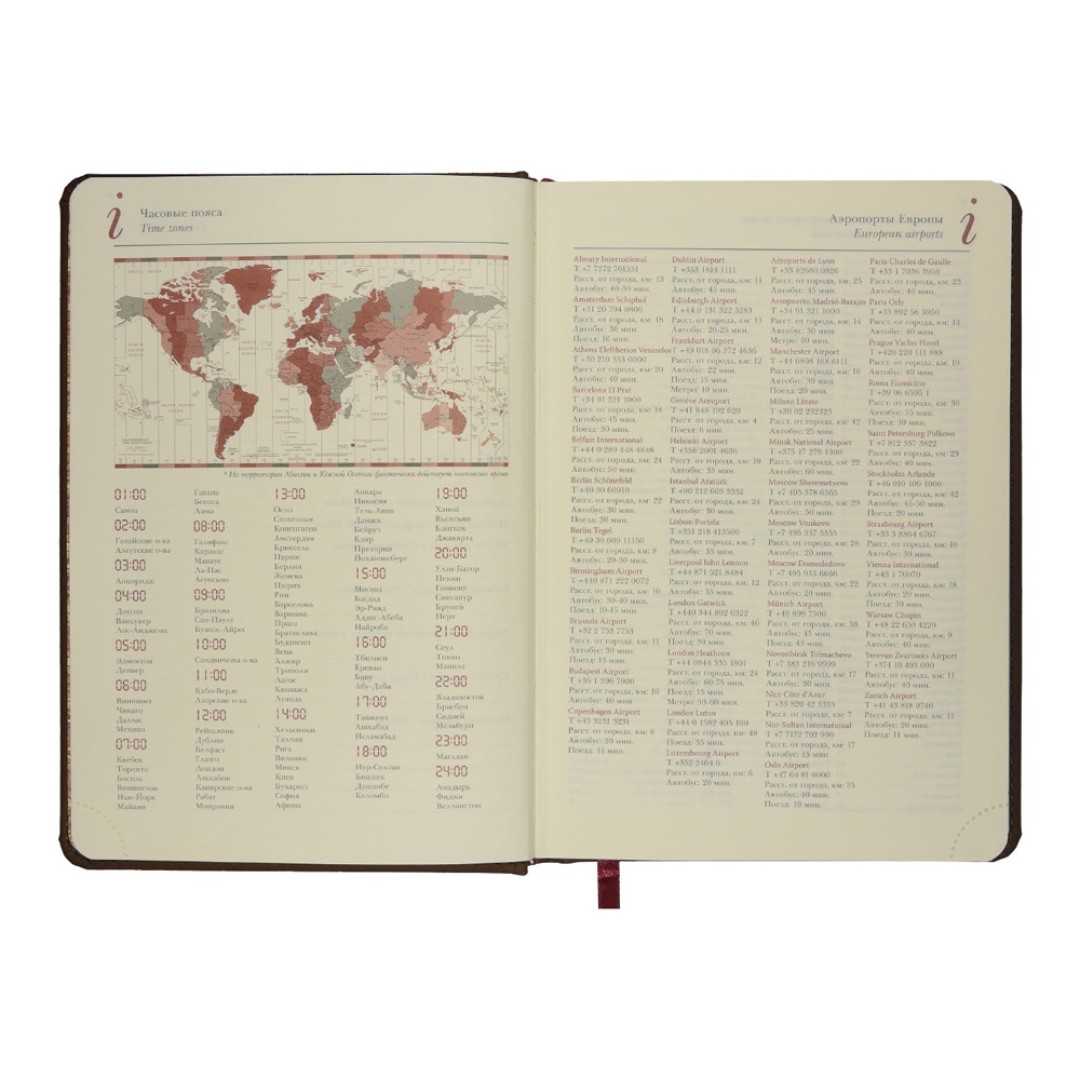 i
Часовые пояса
Time zones
* На территории Абхазии и Южной Осетии фактически действует московское время
01:00
Самоа
02:00
Гавайские о-ва
Алеутские о-ва
03:00
Анкоридж
04:00
Доусон
Ванкувер
Лос-Анджелес
05:00
Эдмонтон
Денвер
06:00
Виннипег
Чикаго
Даллас
Мехико
07:00
Квебек
Торонто
Бостон
Вашингтон
Нью-Йорк
Майами
Гавана
Богота
Лима
08:00
Галифакс
Каракас
Манаус
Ла-Пас
Асунсьон
09:00
Бразилиа
Сан-Паулу
Буэнос-Айрес
10:00
Сандвичевы о-ва
11:00
Кабо-Верде
Азорские о-ва
12:00
Рейкьявик
Дублин
Белфаст
Глазго
Лондон
Лиссабон
Канарские о-ва
Рабат
Монровия
13:00
Осло
Стокгольм
Копенгаген
Амстердам
Брюссель
Париж
Берлин
Женева
Цюрих
Рим
Барселона
Варшава
Прага
Братислава
Будапешт
Вена
Алжир
Триполи
Лагос
Киншаса
Луанда
14:00
Хельсинки
Таллин
Рига
Вильнюс
Минск
Киев
Бухарест
София
Афины
Анкара
Никосия
Тель-Авив
Дамаск
Бейрут
Каир
Претория
Йоханнесбург
15:00
Москва
Багдад
Эр-Рияд
Аддис-Абеба
Найроби
16:00
Тбилиси
Ереван
Баку
Абу-Даби
17:00
Ташкент
Ашхабад
Исламабад
18:00
Нур-Султан
Бишкек
Душанбе
Коломбо
19:00
Ханой
Вьентьян
Бангкок
Джакарта
20:00
Улан-Батор
Пекин
Гонконг
Сингапур
Бруней
Перт
21:00
Сеул
Токио
Манила
22:00
Владивосток
Брисбен
Сидней
Мельбурн
23:00
Магадан
24:00
Анадырь
Фиджи
Веллингтон
Аэропорты Европы
European airports
i
Almaty International
T +7 7272 701551
Расст. от города, км: 13
Автобус: 40-50 мин.
Amsterdam Schiphol
T +31 20 794 0800
Расст. от города, км: 18
Автобус: 30 мин.
Поезд: 16 мин.
Athens Eleftherios Venizelos
T +30 210 353 0000
Расст. от города, км: 20
Автобус: 40 мин.
Barcelona El Prat
T +34 91 321 1000
Расст. от города, км: 18
Автобус: 45 мин.
Поезд: 30 мин.
Belfast International
T +44 0 289 448 4848
Расст. от города, км: 24
Автобус: 50 мин.
Berlin Schönefeld
T +49 30 60910
Расст. от города, км: 22
Автобус: 30 мин.
Поезд: 30 мин.
Berlin Tegel
T +49 30 609 11150
Расст. от города, км: 8
Автобус: 20-30 мин.
Birmingham Airport
T +440 871 222 0072
Расст. от города, км: 10
Автобус: 30-40 мин.
Поезд: 10-15 мин.
Brussels Airport
T +32 2 753 7753
Расст. от города, км: 11
Автобус: 30 мин.
Поезд: 15 мин.
Budapest Airport
T +36 1 296 7000
Расст. от города, км: 16
Автобус: 40 мин.
Copenhagen Airport
T +45 3231 3231
Расст. от города, км: 8
Автобус: 20 мин.
Поезд: 11 мин.
Dublin Airport
T +353 1814 1111
Расст. от города, км: 11
Автобус: 45 мин.
Edinburgh Airport
T +44 0 131 322 5283
Расст. от города, км: 13
Автобус: 20-25 мин.
Frankfurt Airport
T +49 018 06 372 4636
Расст. от города, км: 12
Автобус: 22 мин.
Поезд: 15 мин.
Метро: 10 мин.
Genève Aeroport
T +41 848 192 020
Расст. от города, км: 4
Поезд: 6 мин.
Helsinki Airport
T +358 2001 4636
Расст. от города, км: 19
Автобус: 35 мин.
Istanbul Atatürk
T +90 212 663 5332
Расст. от города, км: 24
Автобус: 30 мин.
Lisbon Portela
T +351 218 413500
Расст. от города, км: 7
Автобус: 35 мин.
Liverpool John Lennon
T +44 871 521 8484
Расст. от города, км: 12
Автобус: 35 мин.
London Gatwick
T +440 344 892 0322
Расст. от города, км: 46
Автобус: 70 мин.
Поезд: 30 мин.
London Heathrow
T +44 0844 335 1801
Расст. от города, км: 24
Автобус: 60-75 мин.
Поезд: 15 мин.
Метро: 50-60 мин.
London Luton
T +44 0 1582 405 100
Расст. от города, км: 48
Поезд: 35 мин.
Luxembourg Airport
T +352 2464 0
Расст. от города, км: 6
Автобус: 20 мин.
Aéroports de Lyon
T +33 82680 0826
Расст. от города, км: 25
Автобус: 45 мин.
Aeropuerto Madrid-Barajas
T +34 91 321 1000
Расст. от города, км: 14
Автобус: 30 мин.
Метро: 40 мин.
Manchester Airport
T +44 0808 168 6111
Расст. от города, км: 16
Автобус: 30 мин.
Поезд: 20 мин.
Milano Linate
T +39 02 232323
Расст. от города, км: 42
Автобус: 25 мин.
Minsk National Airport
T +375 17 279 1300
Расст. от города, км: 22
Автобус: 60 мин.
Moscow Sheremetyevo
T +7 495 578 6565
Расст. от города, км: 29
Автобус: 50 мин.
Moscow Vnukovo
T +7 495 937 5555
Расст. от города, км: 28
Автобус: 20 мин.
Moscow Domodedovo
T +7 495 933 6666
Расст. от города, км: 22
Автобус: 20 мин.
Münich Airport
T +49 899 7500
Расст. от города, км: 38
Автобус: 45 мин.
Поезд: 43 мин.
Novosibirsk Tolmachevo
T +7 383 216 9999
Расст. от города, км: 17
Автобус: 30 мин.
Nice Côte d'Azur
T +33 820 42 3333
Расст. от города, км: 7
Nur Sultan International
T +7 7172 702 999
Расст. от города, км: 17
Автобус: 15 мин.
Oslo Airport
T +47 64 81 0000
Расст. от города, км: 35
Автобус: 40 мин.
Поезд: 19 мин.
Paris Charles de Gaulle
T +33 1 7036 3950
Расст. от города, км: 23
Автобус: 40 мин.
Paris Orly
T +33 892 56 3950
Расст. от города, км: 14
Автобус: 40 мин.
Prague Vaclav Havel
T +420 220 111 888
Расст. от города, км: 19
Автобус: 40 мин.
Roma Fiumicino
T +39 06 6595 1
Расст. от города, км: 30
Автобус: 55 мин.
Поезд: 30 мин.
Saint Petersburg Pulkovo
T +7 812 337 3822
Расст. от города, км: 23
Автобус: 40 мин.
Stockholm Arlanda
T +46 010 109 1000
Расст. от города, км: 42
Автобус: 45-50 мин.
Поезд: 20 мин.
Strasbourg Airport
T +33 3 8864 6767
Расст. от города, км: 10
Автобус: 30 мин.
Vienna International
T +43 1 70070
Расст. от города, км: 18
Автобус: 20 мин.
Поезд: 30 мин.
Warsaw Chopin
T +48 22 650 4220
Расст. от города, км: 9
Автобус: 40 мин.
Yerevan Zvartnots Airport
T +374 10 493 000
Расст. от города, км: 11
Автобус: 40 мин.
Zurich Airport
T +41 43 818 9740
Расст. от города, км: 11
Автобус: 20 мин.
Поезд: 11 мин.